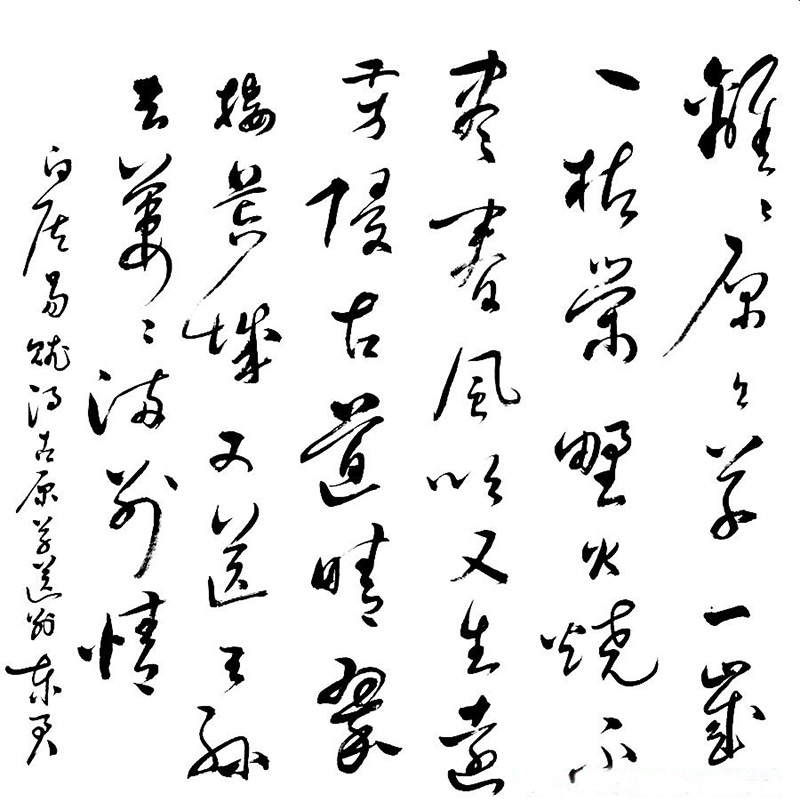 離〻原上草一歲
一枯榮野火燒不
盡春風吹又生遠
芳侵古道晴翠
接荒城又送王孫
去萋〻滿別情
白居易賦得古原草送別